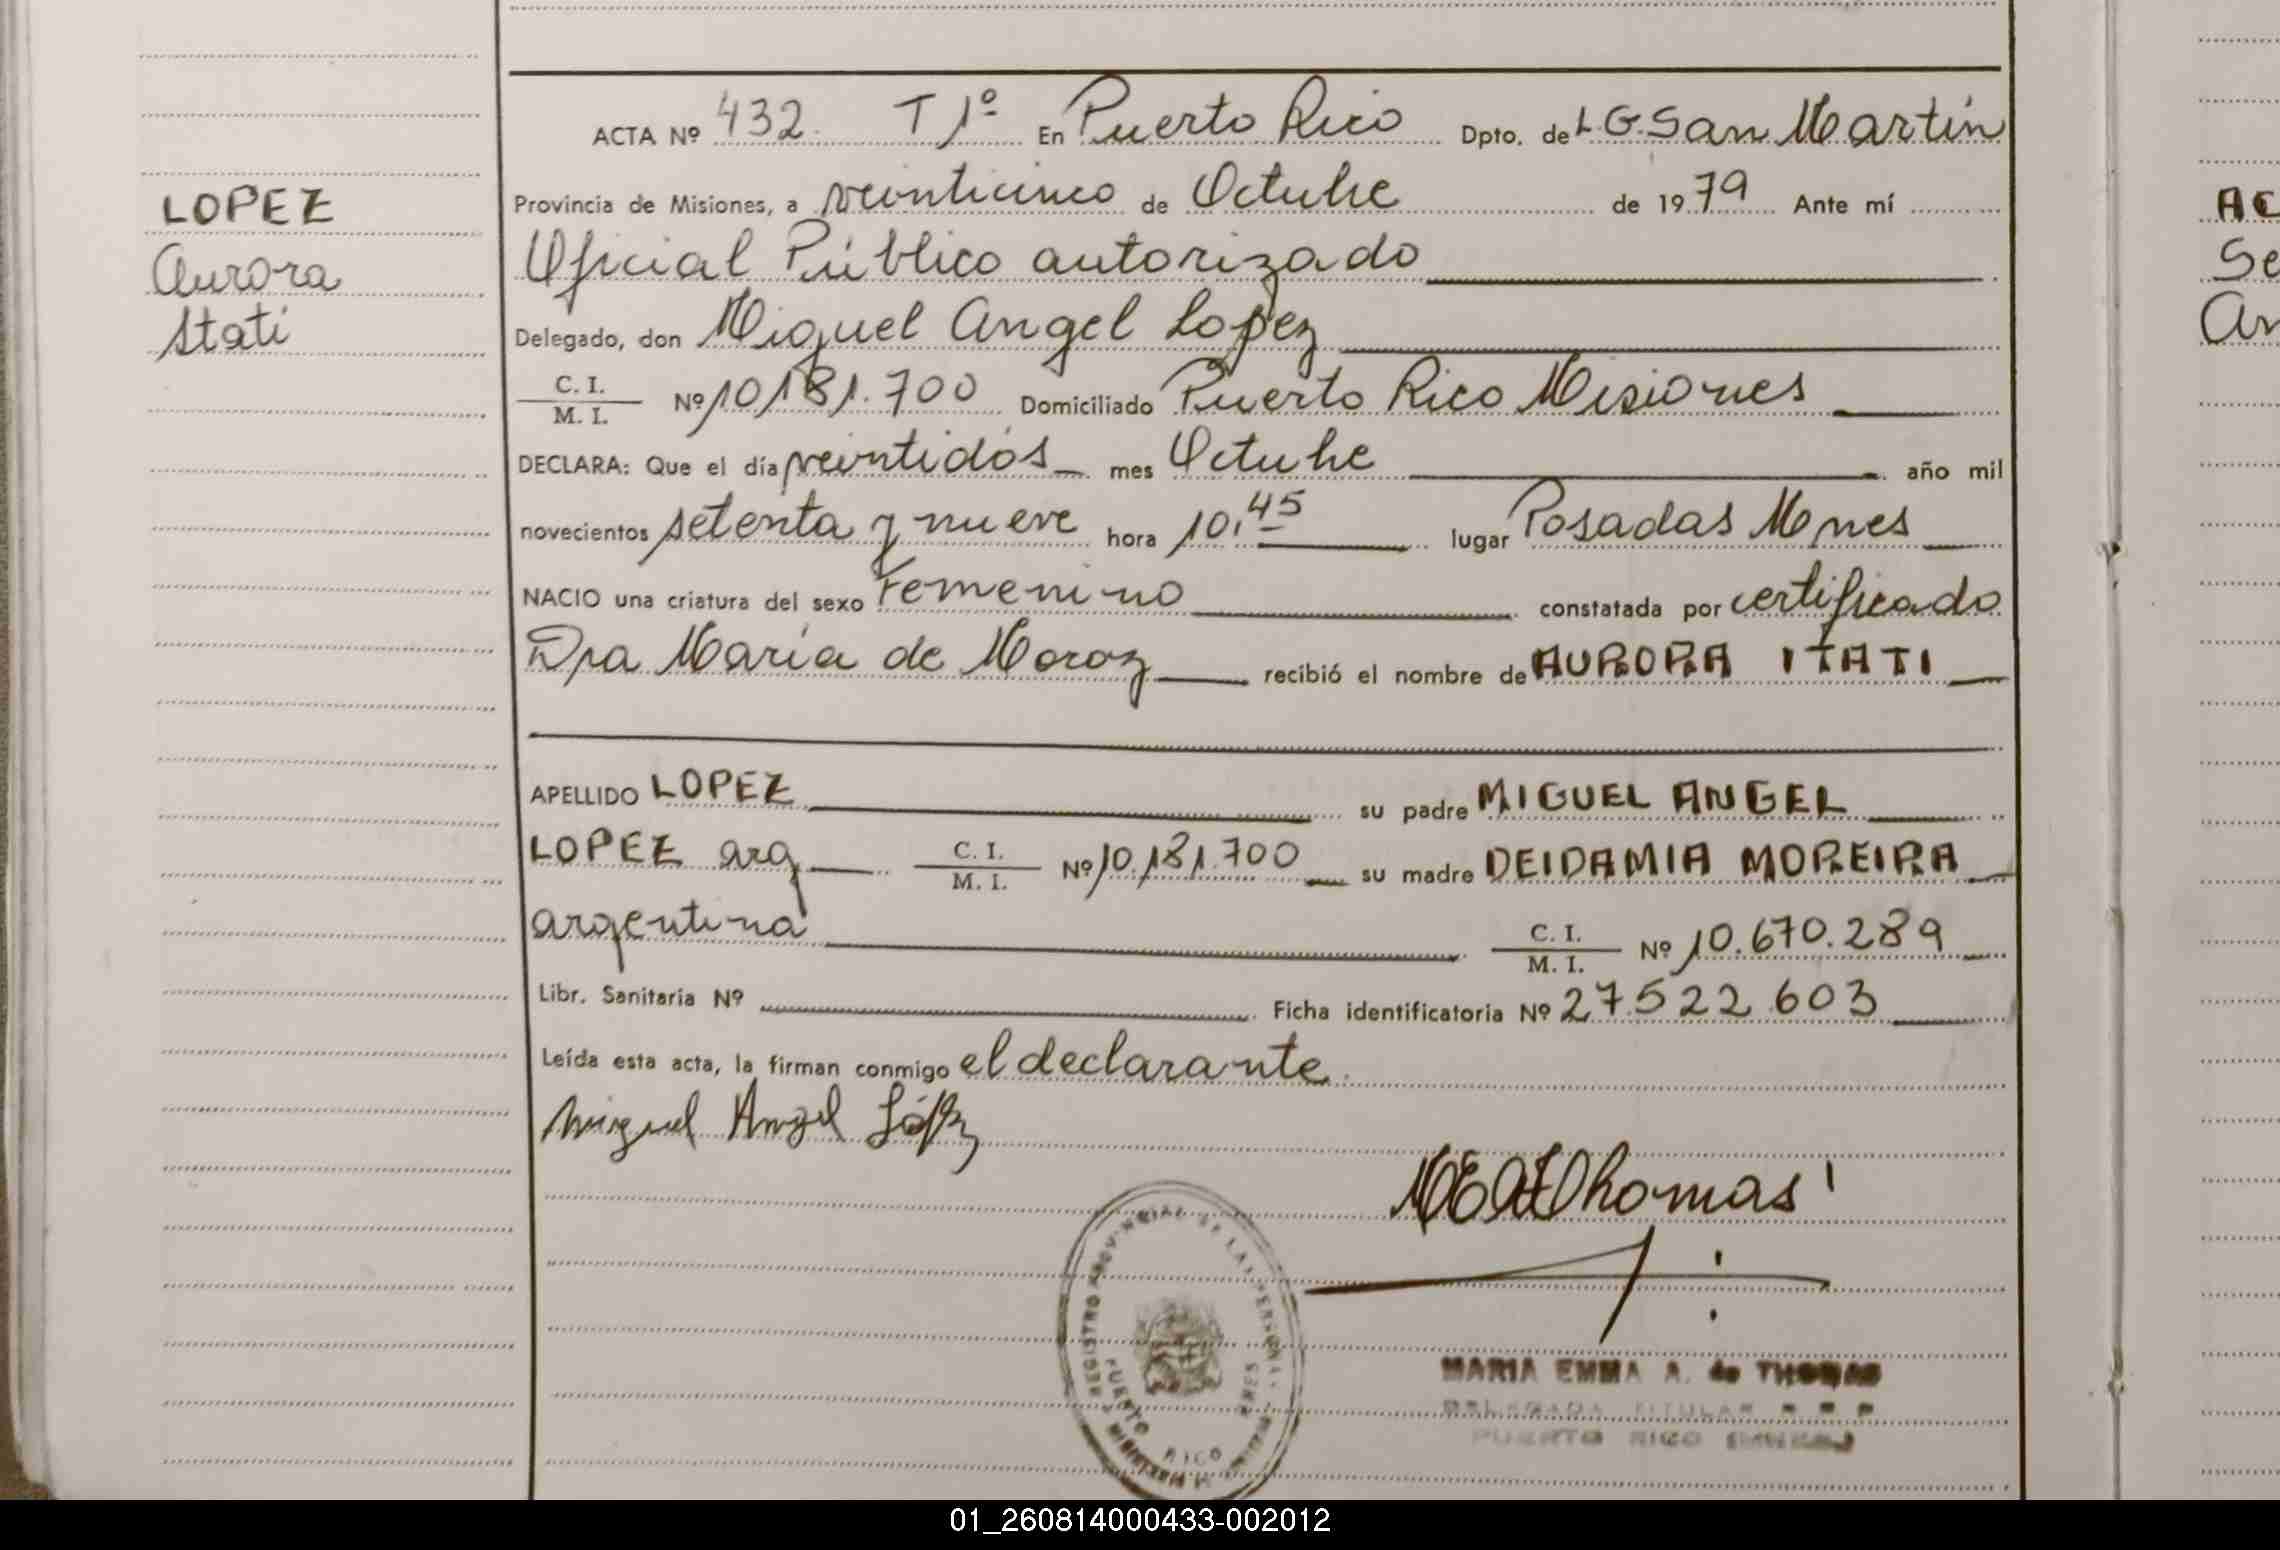 LOPEZ
Aurora
Itati
ACTA Nº 432. T 1º En Puerto Rico Dpto. de L.G. San Martín
Provincia de Misiones, a veinticinco de Octubre de 1979 Ante mí
Oficial Público autorizado
Delegado, don Miguel Angel Lopez
C. I.
M. I. Nº 10.181.700 Domiciliado Puerto Rico Misiones
DECLARA: Que el día veintidós mes Octubre año mil
novecientos setenta y nueve hora 10,45 lugar Posadas Mnes
NACIO una criatura del sexo Femenino constatada por certificado
Dra María de Moroz recibió el nombre de AURORA ITATI
APELLIDO LOPEZ su padre MIGUEL ANGEL
LOPEZ arg C. I.
M. I. Nº 10.181.700 su madre DEIDAMIA MOREIRA
argentina C. I.
M. I. Nº 10.670.289
Libr. Sanitaria Nº Ficha identificatoria Nº 27.522.603
Leída esta acta, la firman conmigo el declarante
Miguel Angel López
Thomas
REGISTRO PROVINCIAL DE LAS PERSONAS
PUERTO RICO MNES
MARIA EMMA A. de THOMAS
DELEGADA TITULAR R. P. P.
PUERTO RICO (MNES.)
AC
Se
An
01_260814000433-002012